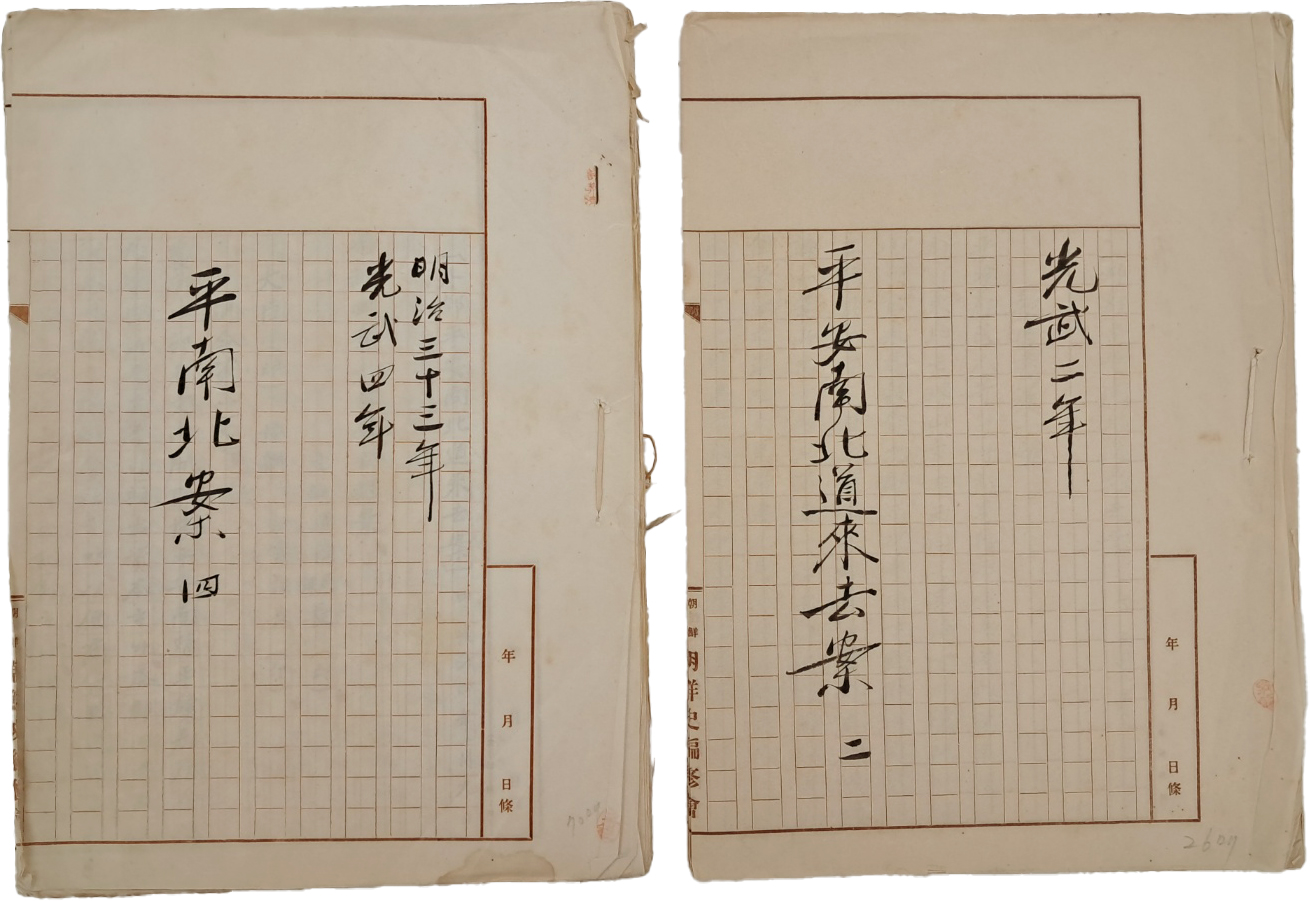 明治三十三年
光武四年
平南北案 四
年 月 日條
7022
光武二年
平安南北道來去案 二
年 月 日條
朝鮮史編修會
2607